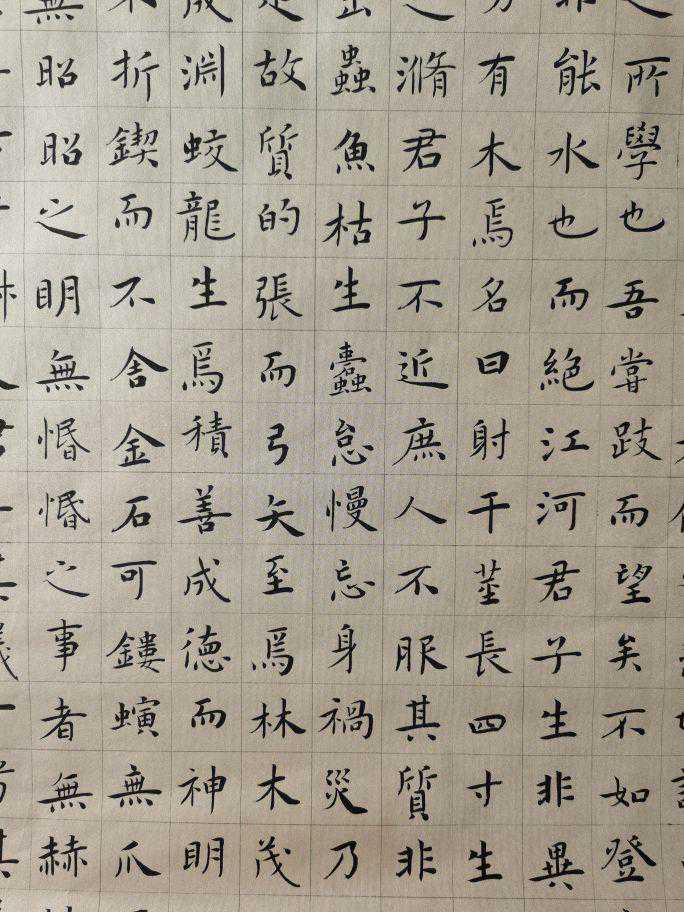 之所學也吾嘗跂而望矣不如登
非能水也而絕江河君子生非異
方有木焉名曰射干莖長四寸生
之滫君子不近庶人不服其質非
出蟲魚枯生蠹怠慢忘身禍災乃
是故質的張而弓矢至焉林木茂
成淵蛟龍生焉積善成德而神明
不折鍥而不舍金石可鏤螾無爪
無昭昭之明無惛惛之事者無赫